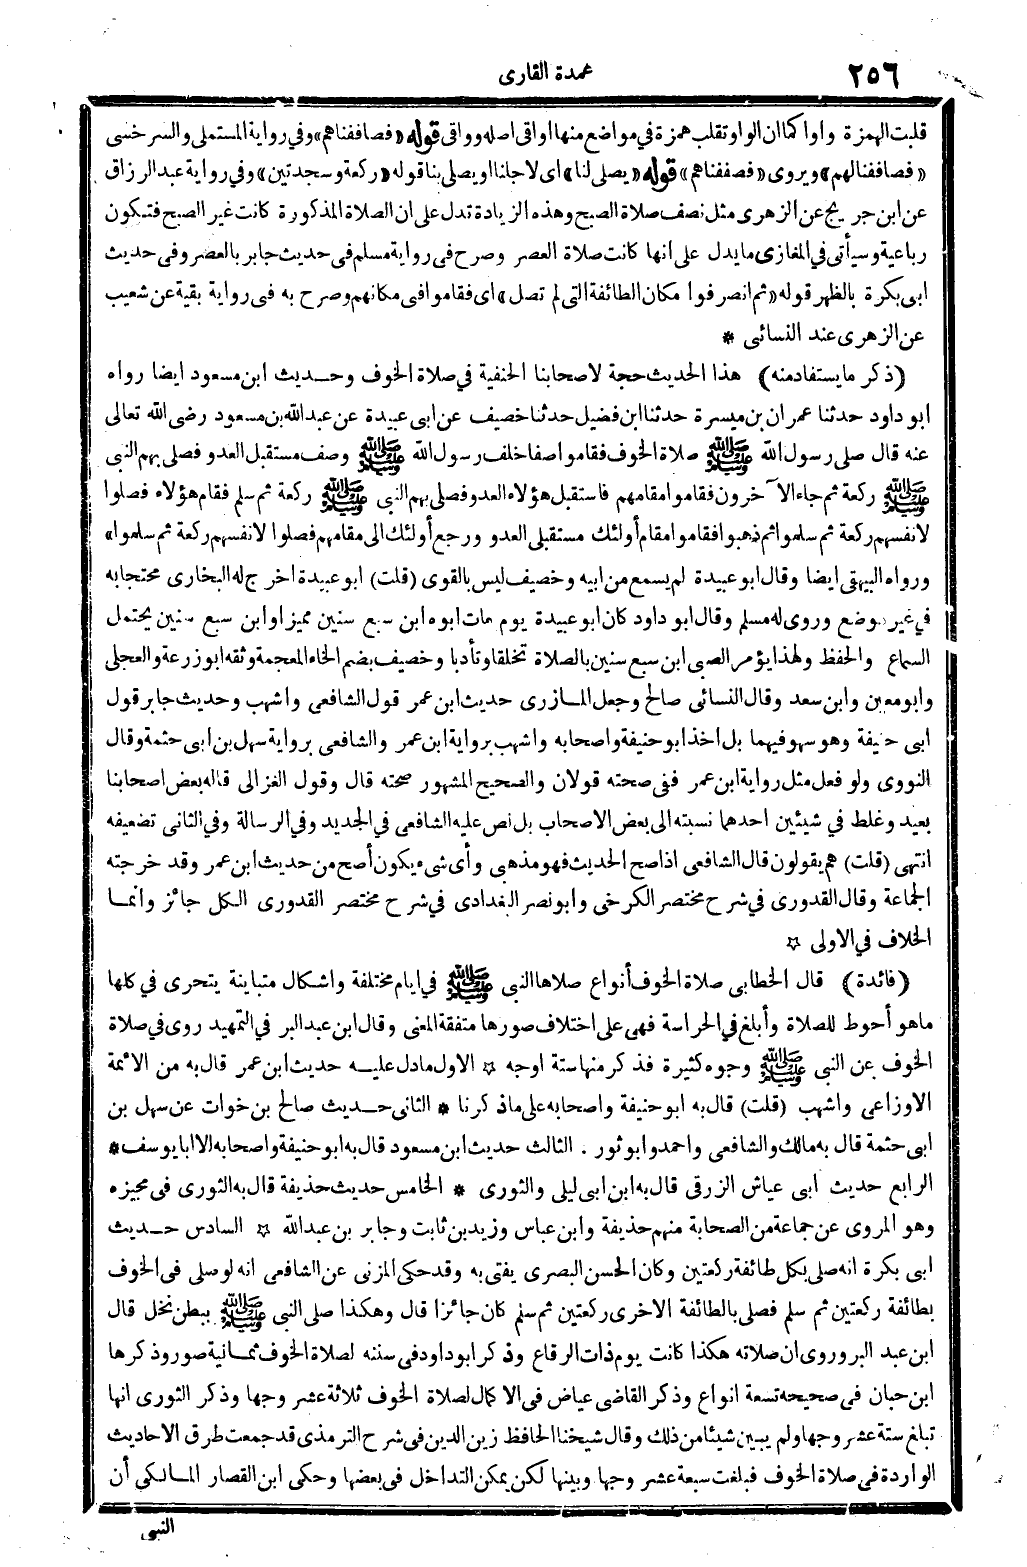 ٢٥٦
عمدة القارى
قلبت الهمزة واوا كما ان الواو تقلب همزة في مواضع منها اواقى اصله وواقى قوله «فصاففناهم» وفي رواية المستملى والسرخسى
«فصاففنا لهم» ويروى «فصففناهم» قوله «يصلى لنا» اى لاجلنا او يصلى بنا قوله «ركعة وسجدتين» وفي رواية عبد الرزاق
عن ابن جريج عن الزهرى مثل نصف صلاة الصبح وهذه الزيادة تدل على ان الصلاة المذكورة كانت غير الصبح فتكون
رباعية وسيأتى في المغازى ما يدل على انها كانت صلاة العصر وصرح فى رواية مسلم فى حديث جابر بالعصر وفى حديث
ابى بكرة بالظهر قوله «ثم انصرفوا مكان الطائفة التى لم تصل» اى فقاموا فى مكانهم وصرح به فى رواية بقية عن شعيب
عن الزهرى عند النسائى *
(ذكر ما يستفاد منه) هذا الحديث حجة لاصحابنا الحنفية في صلاة الخوف وحديث ابن مسعود ايضا رواه
ابو داود حدثنا عمران بن ميسرة حدثنا ابن فضيل حدثنا خصيف عن ابى عبيدة عن عبد الله بن مسعود رضى الله تعالى
عنه قال صلى رسول الله ﷺ صلاة الخوف فقاموا صفا خلف رسول الله ﷺ وصف مستقبل العدو فصلى بهم النبى
ﷺ ركعة ثم جاء الآخرون فقاموا مقامهم فاستقبل هؤلاء العدو فصلى بهم النبى ﷺ ركعة ثم سلم فقام هؤلاء فصلوا
لانفسهم ركعة ثم سلموا ثم ذهبوا فقاموا مقام أولئك مستقبلى العدو ورجع أولئك الى مقامهم فصلوا لانفسهم ركعة ثم سلموا»
ورواه البيهقى ايضا وقال ابو عبيدة لم يسمع من ابيه وخصيف ليس بالقوى (قلت) ابو عبيدة اخرج له البخارى محتجا به
في غير موضع وروى له مسلم وقال ابو داود كان ابو عبيدة يوم مات ابوه ابن سبع سنين مميزا وابن سبع سنين يحتمل
السماع والحفظ ولهذا يؤمر الصبى ابن سبع سنين بالصلاة تخلقا وتأدبا وخصيف بضم الخاء المعجمة وثقه ابو زرعة والعجلى
وابو معين وابن سعد وقال النسائى صالح وجعل المازرى حديث ابن عمر قول الشافعى واشهب وحديث جابر قول
ابى حنيفة وهو سهو فيهما بل اخذ ابو حنيفة واصحابه واشهب برواية ابن عمر والشافعى برواية سهل بن ابى حثمة وقال
النووى ولو فعل مثل رواية ابن عمر ففى صحته قولان والصحيح المشهور صحته قال وقول الغزالى قاله بعض اصحابنا
بعيد وغلط في شيئين احدهما نسبته الى بعض الاصحاب بل نص عليه الشافعى في الجديد وفي الرسالة وفي الثانى تضعيفه
انتهى (قلت) هم يقولون قال الشافعى اذا صح الحديث فهو مذهبى وأى شىء يكون أصح من حديث ابن عمر وقد خرجته
الجماعة وقال القدورى في شرح مختصر الكرخى وابو نصر البغدادى في شرح مختصر القدورى الكل جائز وانما
الخلاف في الاولى ☆
(فائدة) قال الخطابى صلاة الخوف أنواع صلاها النبى ﷺ في ايام مختلفة واشكال متباينة يتحرى في كلها
ما هو أحوط للصلاة وأبلغ في الحراسة فهى على اختلاف صورها متفقة المعنى وقال ابن عبد البر في التمهيد روى في صلاة
الخوف عن النبى ﷺ وجوه كثيرة فذكر منها ستة اوجه ☆ الاول ما دل عليه حديث ابن عمر قال به من الائمة
الاوزاعى واشهب (قلت) قال به ابو حنيفة واصحابه على ما ذكرنا * الثانى حديث صالح بن خوات عن سهل بن
ابى حثمة قال به مالك والشافعى واحمد وابو ثور . الثالث حديث ابن مسعود قال به ابو حنيفة واصحابه الا ابا يوسف *
الرابع حديث ابى عياش الزرقى قال به ابن ابى ليلى والثورى * الخامس حديث حذيفة قال به الثورى فى مجيزه
وهو المروى عن جماعة من الصحابة منهم حذيفة وابن عباس وزيد بن ثابت وجابر بن عبد الله ☆ السادس حديث
ابى بكرة انه صلى بكل طائفة ركعتين وكان الحسن البصرى يفتى به وقد حكى المزنى عن الشافعى انه لو صلى فى الخوف
بطائفة ركعتين ثم سلم فصلى بالطائفة الاخرى ركعتين ثم سلم كان جائزا قال وهكذا صلى النبى ﷺ ببطن نخل قال
ابن عبد البر وروى ان صلاته هكذا كانت يوم ذات الرقاع وذكر ابو داود فى سننه لصلاة الخوف ثمانية صور وذكرها
ابن حبان فى صحيحه تسعة انواع وذكر القاضى عياض فى الاكمال لصلاة الخوف ثلاثة عشر وجها وذكر الثورى انها
تبلغ ستة عشر وجها ولم يبين شيئا من ذلك وقال شيخنا الحافظ زين الدين فى شرح الترمذى قد جمعت طرق الاحاديث
الواردة فى صلاة الخوف فبلغت سبعة عشر وجها وبينها لكن يمكن التداخل فى بعضها وحكى ابن القصار المالكى أن
النبى